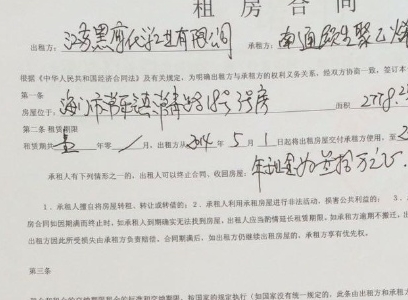 租 房 合 同
出租方: 江苏黑 化学工业有限公司 承租方: 南通 聚乙烯
根据《中华人民共和国经济合同法》及有关规定,为明确出租方与承租方的权利义务关系,经双方协商一致,签订本
第一条
房屋位于: 海门市常乐镇 路18号3号房 面积 2778.2
第二条 租赁期限
租赁期共 壹 年零 / 月,出租方从 2014 年 5 月 1 日起将出租房屋交付承租方使用,至 2
年租金为叁拾万
承租人有下列情形之一的,出租人可以终止合同、收回房屋:
1、承租人擅自将房屋转租、转让或转借的;2、承租人利用承租房屋进行非法活动,损害公共利益的;3、
房合同如因期满而终止时,如承租人到期确实无法找到房屋,出租人应当酌情延长租赁期限。如承租方逾期不搬迁,出
出租方因此所受损失由承租方负责赔偿。合同期满后,如出租方仍继续出租房屋的,承租方享有优先权。
第三条
按国家的规定执行(如国家没有统一规定的,此条由出租方和承租方